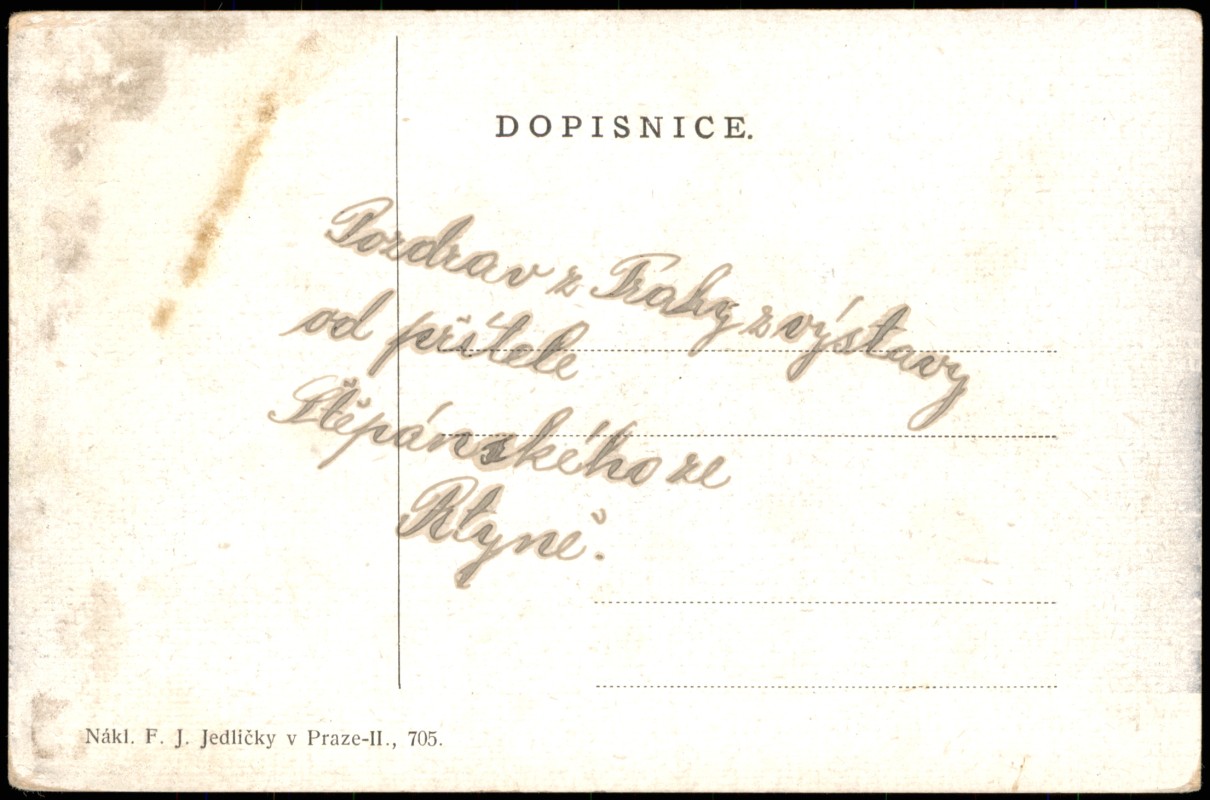 DOPISNICE.
Pozdrav z Prahy z výstavy
od přítele
Štěpánského ze
Rtyně.
Nákl. F. J. Jedličky v Praze-II., 705.